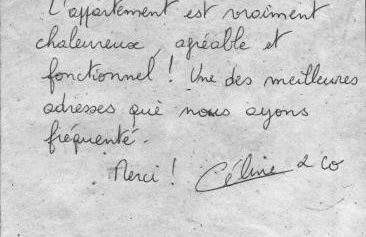 L'appartement est vraiment
chaleureux, agréable et
fonctionnel ! Une des meilleures
adresses que nous ayons
fréquenté.
Merci ! Céline & co